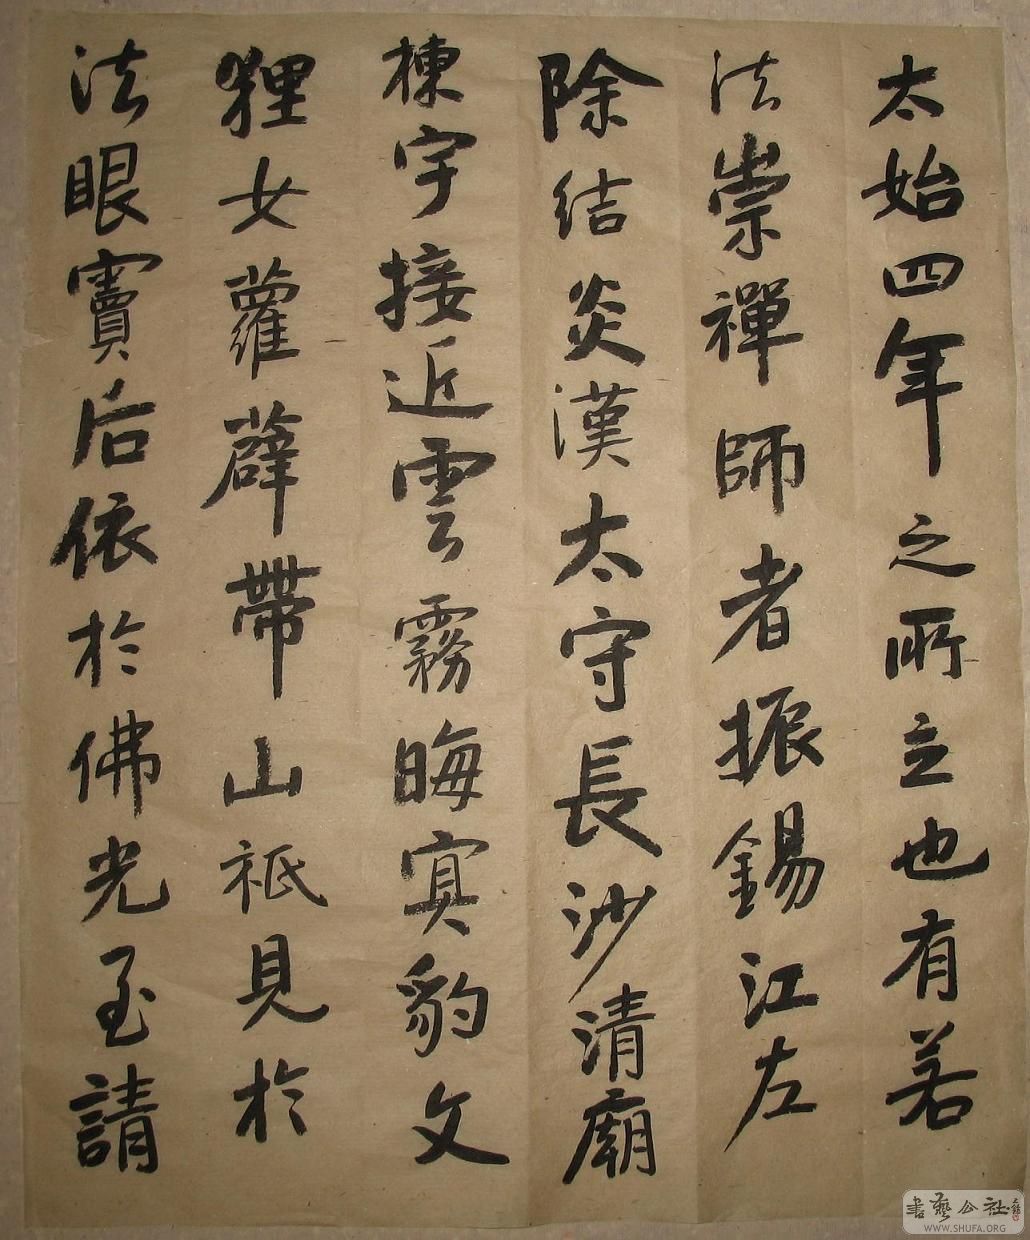 太始四年之所立也有若
法崇禪師者振錫江左
除結炎漢太守長沙清廟
棟宇接近雲霧晦㝠豹文
狸女蘿薜帶山祇見於
法眼竇后依於佛光至請
書藝公社
WWW.SHUFA.ORG